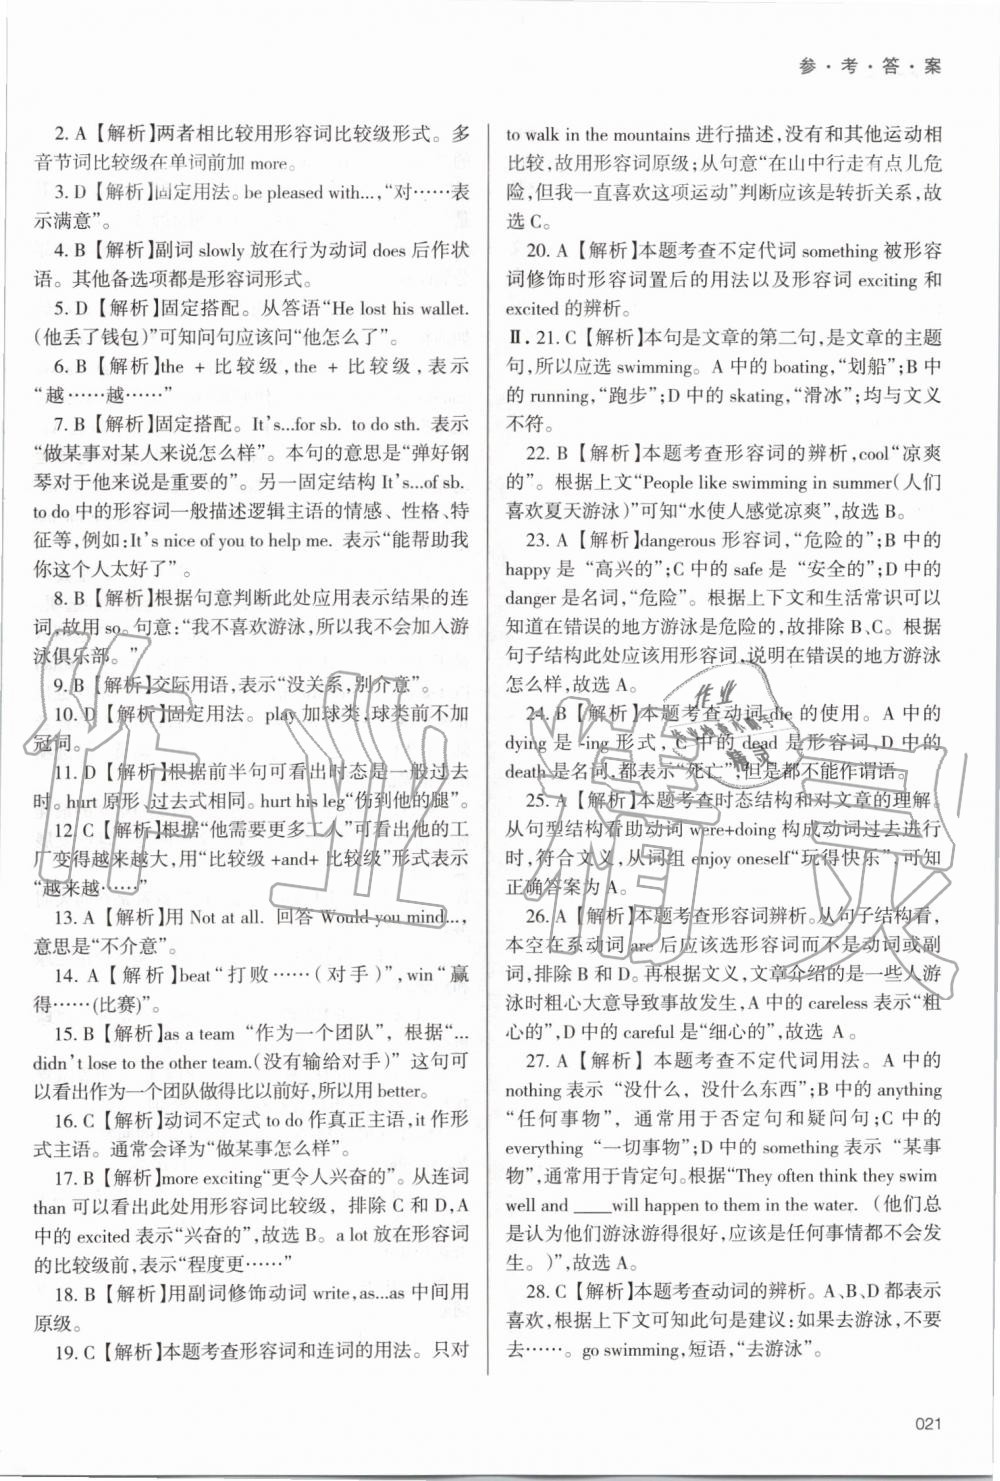 参·考·答·案
2. A【解析】两者相比较用形容词比较级形式。多
音节词比较级在单词前加 more。
3. D【解析】固定用法。be pleased with...,“对……表
示满意”。
4. B【解析】副词 slowly 放在行为动词 does 后作状
语。其他备选项都是形容词形式。
5. D【解析】固定搭配。从答语“He lost his wallet.
(他丢了钱包)”可知问句应该问“他怎么了”。
6. B【解析】the + 比较级,the + 比较级,表示
“越……越……”
7. B【解析】固定搭配。It's...for sb. to do sth. 表示
“做某事对某人来说怎么样”。本句的意思是“弹好钢
琴对于他来说是重要的”。另一固定结构 It's...of sb.
to do 中的形容词一般描述逻辑主语的情感、性格、特
征等,例如:It's nice of you to help me. 表示“能帮助我
你这个人太好了”。
8. B【解析】根据句意判断此处应用表示结果的连
词,故用 so。句意:“我不喜欢游泳,所以我不会加入游
泳俱乐部。”
9. B【解析】交际用语,表示“没关系,别介意”。
10. D【解析】固定用法。play 加球类,球类前不加
冠词。
11. D【解析】根据前半句可看出时态是一般过去
时。hurt 原形、过去式相同。hurt his leg“伤到他的腿”。
12. C【解析】根据“他需要更多工人”可看出他的工
厂变得越来越大,用“比较级 +and+ 比较级”形式表示
“越来越……”
13. A【解析】用 Not at all. 回答 Would you mind...,
意思是“不介意”。
14. A【解析】beat“打败……(对手)”,win“赢
得……(比赛)”。
15. B【解析】as a team “作为一个团队”, 根据“...
didn't lose to the other team.(没有输给对手)” 这句可
以看出作为一个团队做得比以前好,所以用 better。
16. C【解析】动词不定式 to do 作真正主语,it 作形
式主语。通常会译为“做某事怎么样”。
17. B【解析】more exciting“更令人兴奋的”。从连词
than 可以看出此处用形容词比较级, 排除 C 和 D,A
中的 excited 表示“兴奋的”,故选 B。a lot 放在形容词
的比较级前,表示“程度更……”
18. B【解析】用副词修饰动词 write,as...as 中间用
原级。
19. C【解析】本题考查形容词和连词的用法。只对
to walk in the mountains 进行描述,没有和其他运动相
比较,故用形容词原级;从句意“在山中行走有点儿危
险,但我一直喜欢这项运动”判断应该是转折关系,故
选 C。
20. A【解析】本题考查不定代词 something 被形容
词修饰时形容词置后的用法以及形容词 exciting 和
excited 的辨析。
Ⅱ. 21. C【解析】本句是文章的第二句,是文章的主题
句,所以应选 swimming。A 中的 boating,“划船”;B 中
的 running,“跑步”;D 中的 skating,“滑冰”;均与文义
不符。
22. B【解析】本题考查形容词的辨析,cool“凉爽
的”。根据上文“People like swimming in summer(人们
喜欢夏天游泳)”可知“水使人感觉凉爽”,故选 B。
23. A【解析】dangerous 形容词,“危险的”;B 中的
happy 是“高兴的”;C 中的 safe 是“安全的”;D 中的
danger 是名词,“危险”。根据上下文和生活常识可以
知道在错误的地方游泳是危险的,故排除 B、C。根据
句子结构此处应该用形容词,说明在错误的地方游泳
怎么样,故选 A。
24. B【解析】本题考查动词 die 的使用。A 中的
dying 是 -ing 形式,C 中的 dead 是形容词,D 中的
death 是名词,都表示“死亡”,但是都不能作谓语。
25. A【解析】本题考查时态结构和对文章的理解。
从句型结构看助动词 were+doing 构成动词过去进行
时,符合文义,从词组 enjoy oneself“玩得快乐”,可知
正确答案为 A。
26. A【解析】本题考查形容词辨析。从句子结构看,
本空在系动词 are 后应该选形容词而不是动词或副
词,排除 B 和 D。再根据文义,文章介绍的是一些人游
泳时粗心大意导致事故发生,A 中的 careless 表示“粗
心的”,D 中的 careful 是“细心的”,故选 A。
27. A【解析】本题考查不定代词用法。A 中的
nothing 表示 “没什么, 没什么东西”;B 中的 anything
“任何事物”, 通常用于否定句和疑问句;C 中的
everything “一切事物”;D 中的 something 表示 “某事
物”,通常用于肯定句。根据“They often think they swim
well and ____will happen to them in the water.(他们总
是认为他们游泳游得很好,应该是任何事情都不会发
生。)”,故选 A。
28. C【解析】本题考查动词的辨析。A、B、D 都表示
喜欢,根据上下文可知此句是建议:如果去游泳,不要
去……。go swimming,短语,“去游泳”。
021
作业精灵